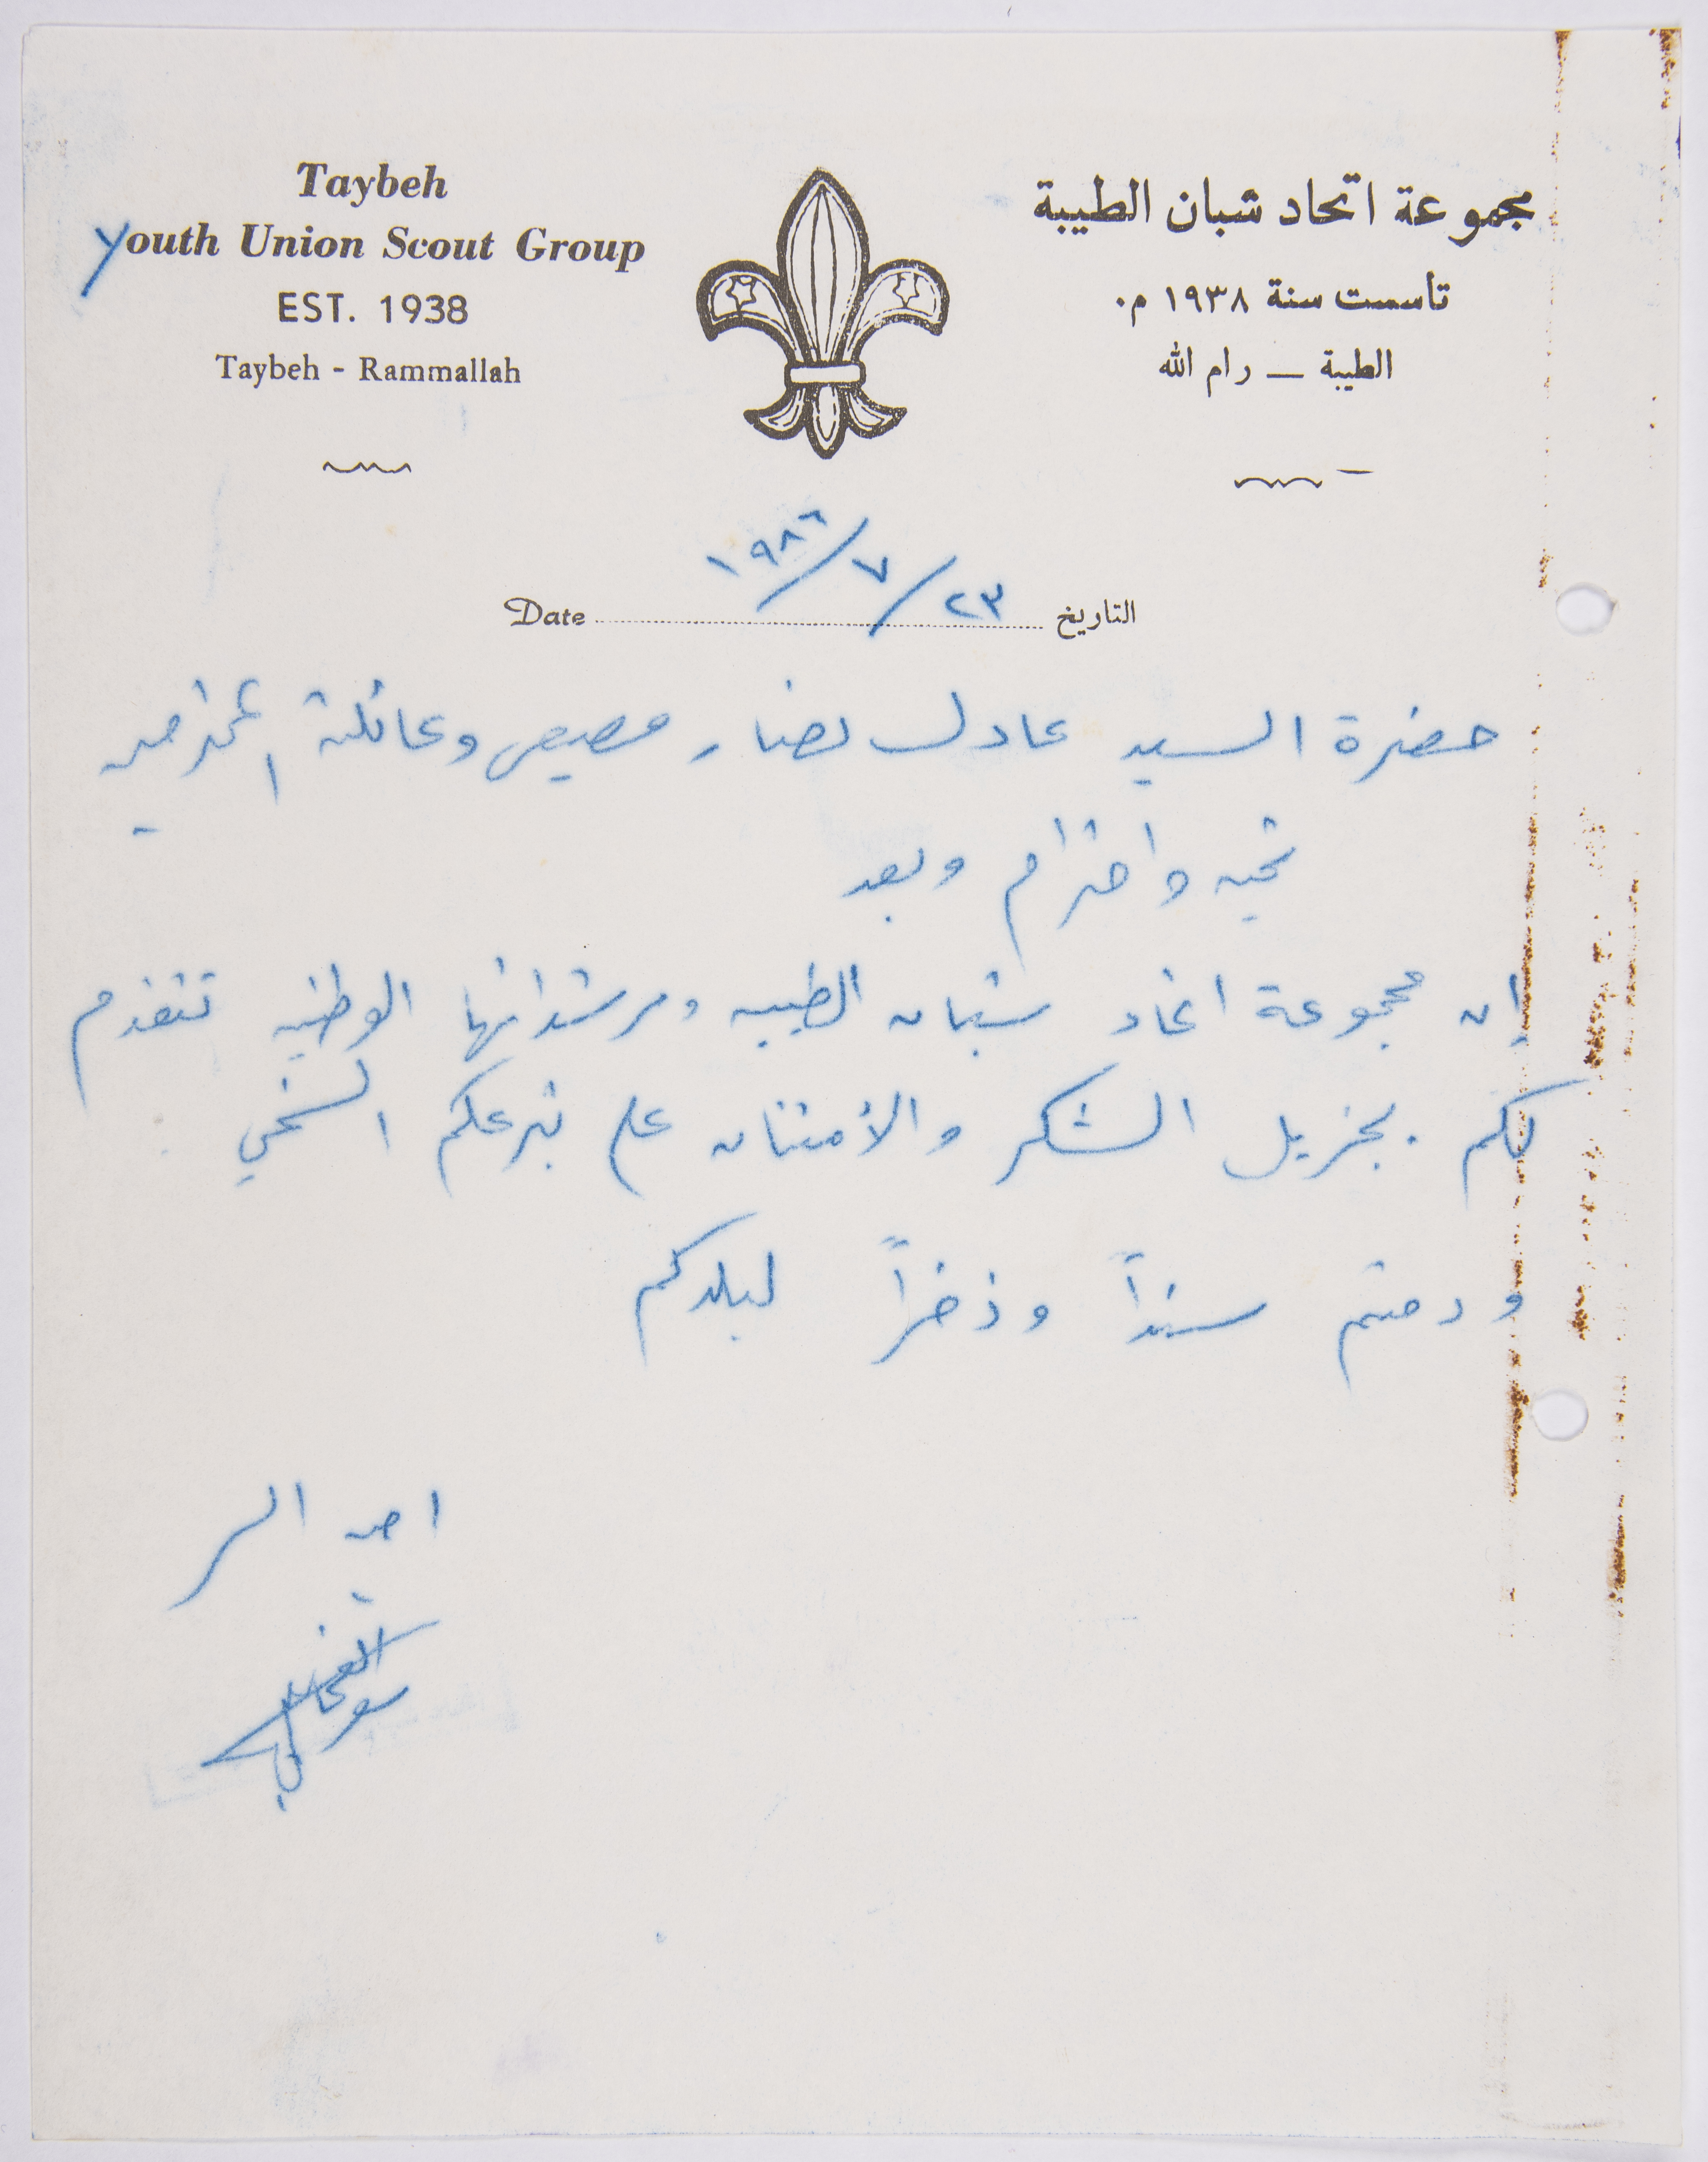 Taybeh
Youth Union Scout Group
EST. 1938
Taybeh - Rammallah
مجموعة اتحاد شبان الطيبة
تأسست سنة ١٩٣٨ م.
الطيبة — رام الله
Date التاريخ ٢٣/٧/١٩٨٦
حضرة السيد عادل نصار مصيص وعائلته المحترمين
تحيه واحترام وبعد
إن مجموعة اتحاد شبان الطيبه ومرشداتها الوطنيه تتقدم
لكم بجزيل الشكر والأمتنان على تبرعكم السخي
ودمتم سنداً وذخراً لبلدكم
امين السر